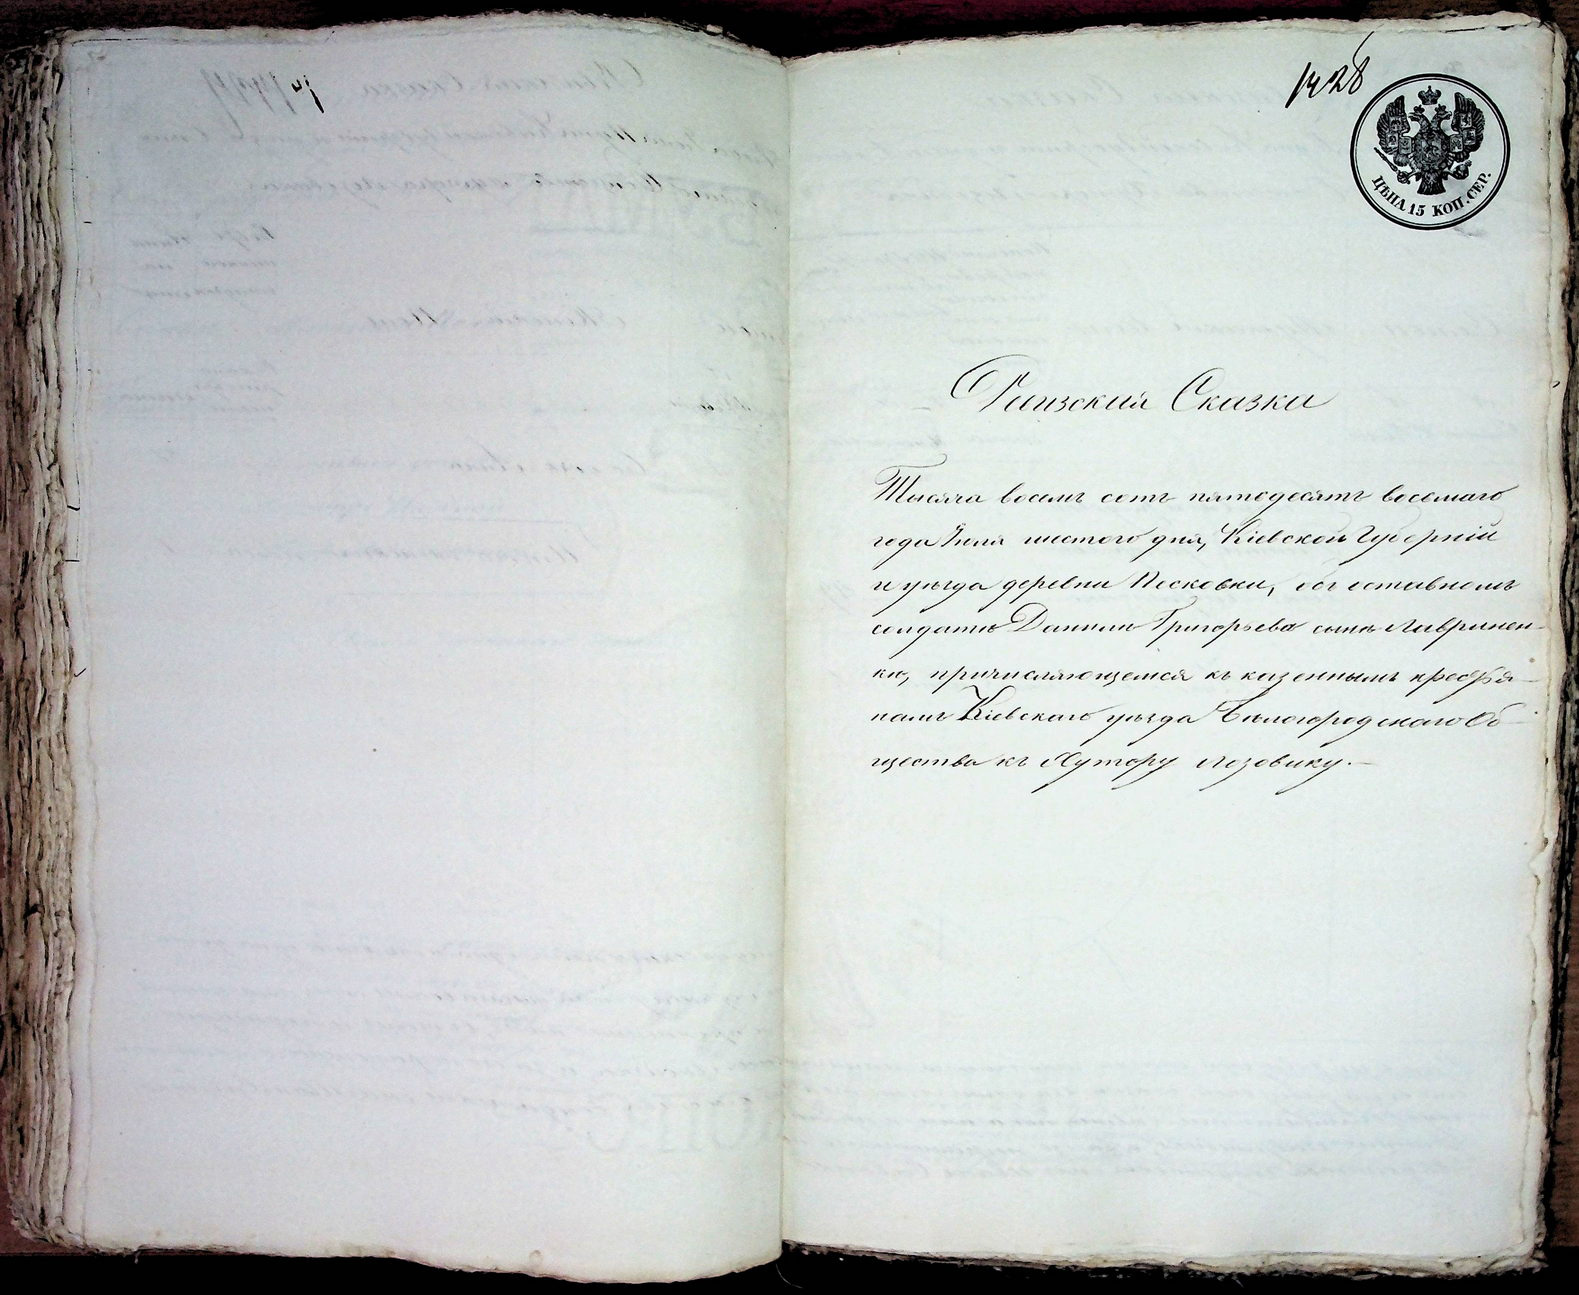 1428
ЦѢНА 15 КОП. СЕР.
Ревизская Сказка
Тысяча восемь сотъ пятодесятъ восьмаго
года Июня шестого дня, Кіевской Губерніи
и уѣзда деревни Песковки, объ отставномъ
солдатѣ Даниилѣ Григорьевѣ сынѣ Лавринен-
кѣ, причисляющемся къ казеннымъ крестья-
намъ Кіевскаго уѣзда Бѣлогородскаго Об-
щества къ Хутору Лозовику.